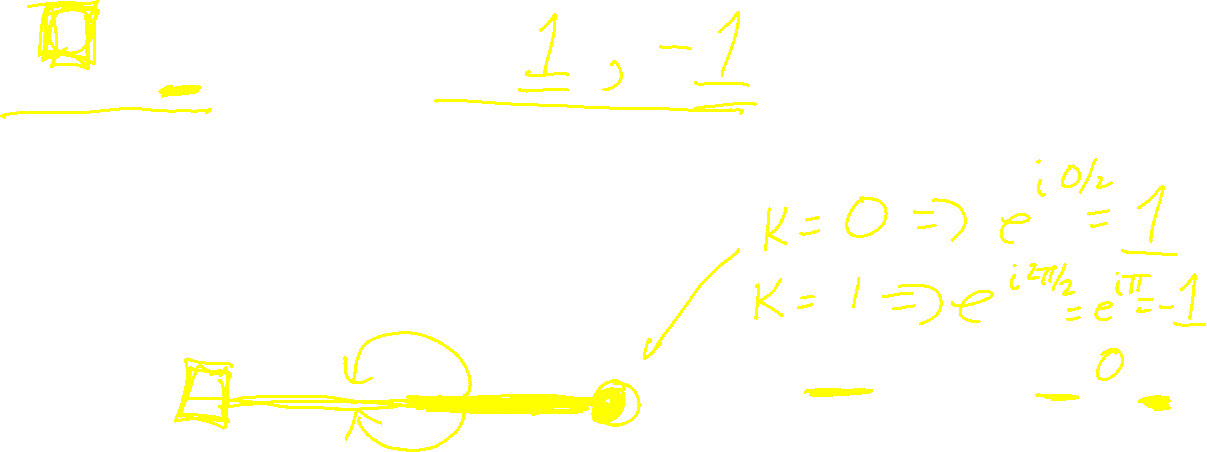 1, -1
K = 0 => e^{i 0/2} = 1
K = 1 => e^{i 2π/2} = e^{iπ} = -1
0